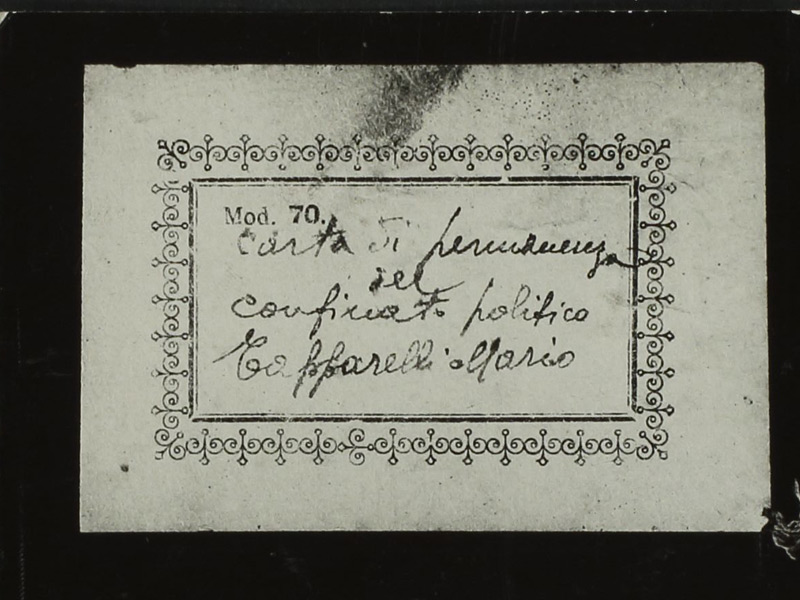 Mod. 70.
Carta di permanenza
del
confinato politico
Tapparelli Mario